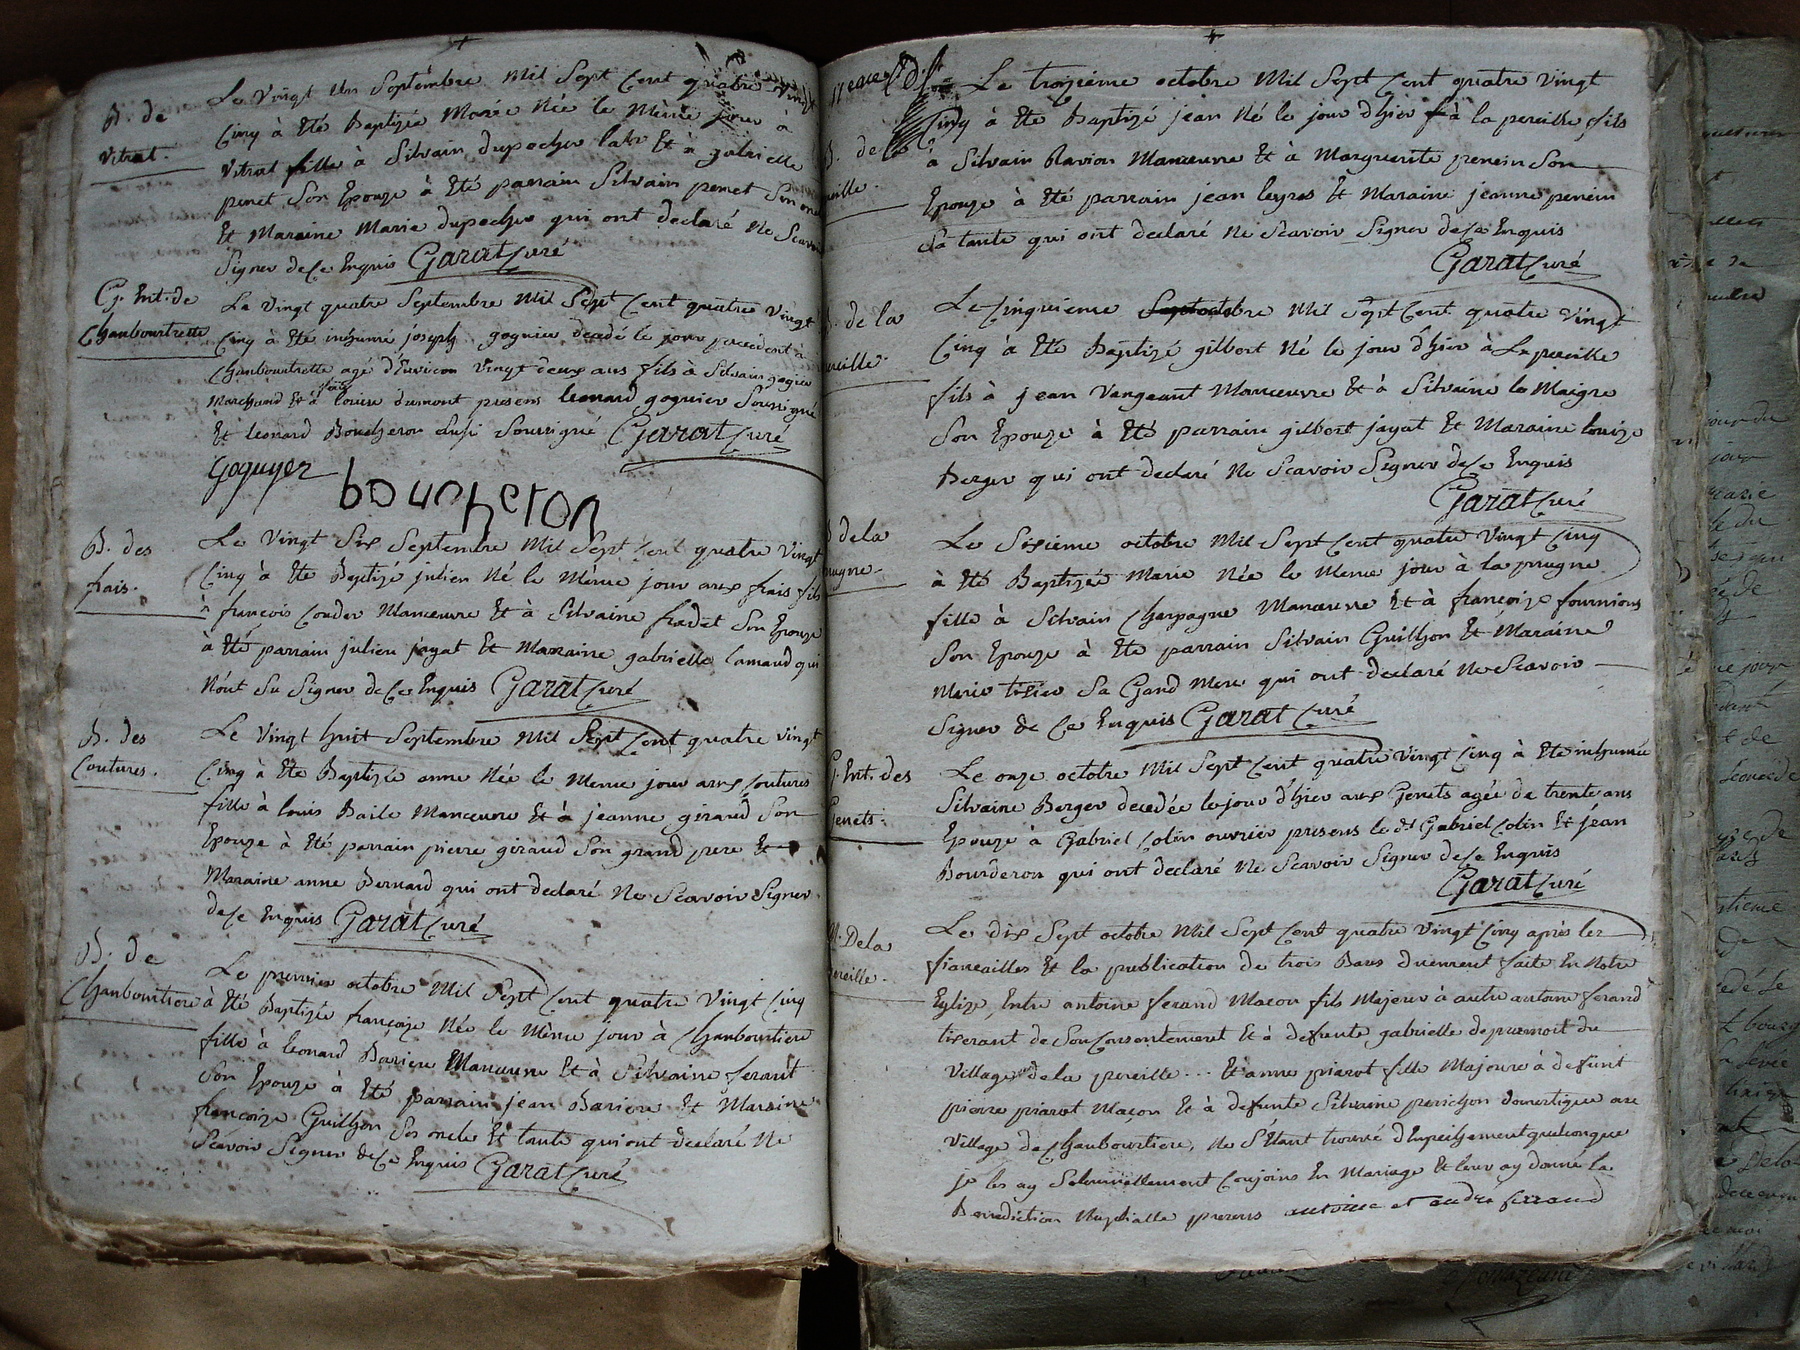 B. de
Vitrat.
Le Vingt un Septembre Mil Sept Cent quatre Vingt
Cinq à Eté Baptizée Marie Née le Même jour à
Vitrat fille à Silvain dupocher labr Et à gabrielle
penet Son Epouze à Eté parrain Silvain penet Son on
Et Maraine Marie dupocher qui ont declaré Ne Scavoir
Signer de Ce Enquis Garat Curé
G. Ent. de
Chaubourtrette
Le Vingt quatre Septembre Mil Sept Cent quatre Vingt
Cinq à Eté inhumé joseph goguier decedé le jour precedent à
Chaubourtrette agé d'Environ Vingt deux ans fils à Silvain gogier
Marchand Et à louise dumont presens leonard goguier Soussigné
Et leonard Boucheron aussi Soussigné Garat Curé
Goguyer
boucheron
B. des
frais.
Le Vingt Six Septembre Mil Sept Cent quatre Vingt
Cinq à Eté Baptizé julien Né le Même jour aux frais fils
à françois Couder Manœuvre Et à Silvaine fradet Son Epouze
à Eté parrain julien jayat Et Marraine gabrielle lamaud qui
N'ont Su Signer de Ce Enquis Garat Curé
B. des
Coutures.
Le Vingt huit Septembre Mil Sept Cent quatre Vingt
Cinq à Eté Baptizée anne Née le Meme jour aux Coutures
fille à louis Baile Manœuvre Et à jeanne giraud Son
Epouze à Eté parrain pierre giraud Son grand pere Et
Maraine anne Bernard qui ont declaré Ne Scavoir Signer
de Ce Enquis Garat Curé
B. de
Chaubourtiere
Le premier octobre Mil Sept Cent quatre Vingt Cinq
à Eté Baptizée françoize Née le Même jour à Chaubourtiere
fille à leonard Bariere Manœuvre Et à Silvaine ferant
Son Epouze à Eté parrain jean Bariere Et Maraine
françoize Guilhon Ses oncle Et tante qui ont declaré Ne
Scavoir Signer de Ce Enquis Garat Curé
B. de la
Le troizieme octobre Mil Sept Cent quatre Vingt
Cinq à Eté Baptizé jean Né le jour d'hier à la pereille fils
à Silvain Ravion Manœuvre Et à Marguerite penein Son
Epouze à Eté parrain jean leyras Et Maraine jeanne penein
Sa tante qui ont declaré Ne Scavoir Signer de Ce Enquis
Garat Curé
B. de la
ereille.
Le Cinquieme octobre Mil Sept Cent quatre Vingt
Cinq à Eté Baptizé gilbert Né le jour d'hier à La pereille
fils à jean Vengeant Manœuvre Et à Silvaine la Maigre
Son Epouze à Eté parrain gilbert jayat Et Maraine louize
Berger qui ont declaré Ne Scavoir Signer de Ce Enquis
Garat Curé
B de la
prugne.
Le Sixieme octobre Mil Sept Cent quatre Vingt Cinq
à Eté Baptizée Marie Née le Meme jour à la prugne
fille à Silvain Chapagne Manœuvre Et à françoize fournioux
Son Epouze à Eté parrain Silvain Guilhon Et Maraine
Marie tixier Sa Grand Mere qui ont declaré Ne Scavoir
Signer de Ce Enquis Garat Curé
G. Ent. des
Genets.
Le onze octobre Mil Sept Cent quatre Vingt Cinq à Eté inhumée
Silvaine Berger decedée le jour d'hier aux Genets agée de trente ans
Epouze à Gabriel Colin ouvrier presens le dt Gabriel Colin Et jean
Bourderon qui ont declaré Ne Scavoir Signer de Ce Enquis
Garat Curé
M. De la
pereille.
Le dix Sept octobre Mil Sept Cent quatre Vingt Cinq après les
fiancailles Et la publication de trois Bans duement faite En Notre
Eglize, Entre antoine ferand Macon fils Majeur à autre antoine ferand
tixerant de Son Consentement Et à defunte gabrielle depuemoit du
Village de la pereille ... Et anne piarot fille Majeure à defunt
pierre piarot Maçon Et à defunte Silvaine perichon domestique au
Village de Chaubourtiere, Ne S'Etant trouvé d'Empeichement quelconque
je les ay Solemnellement Conjoins En Mariage Et leur ay donné la
Benediction Nuptialle presens antoine et andre ferrand